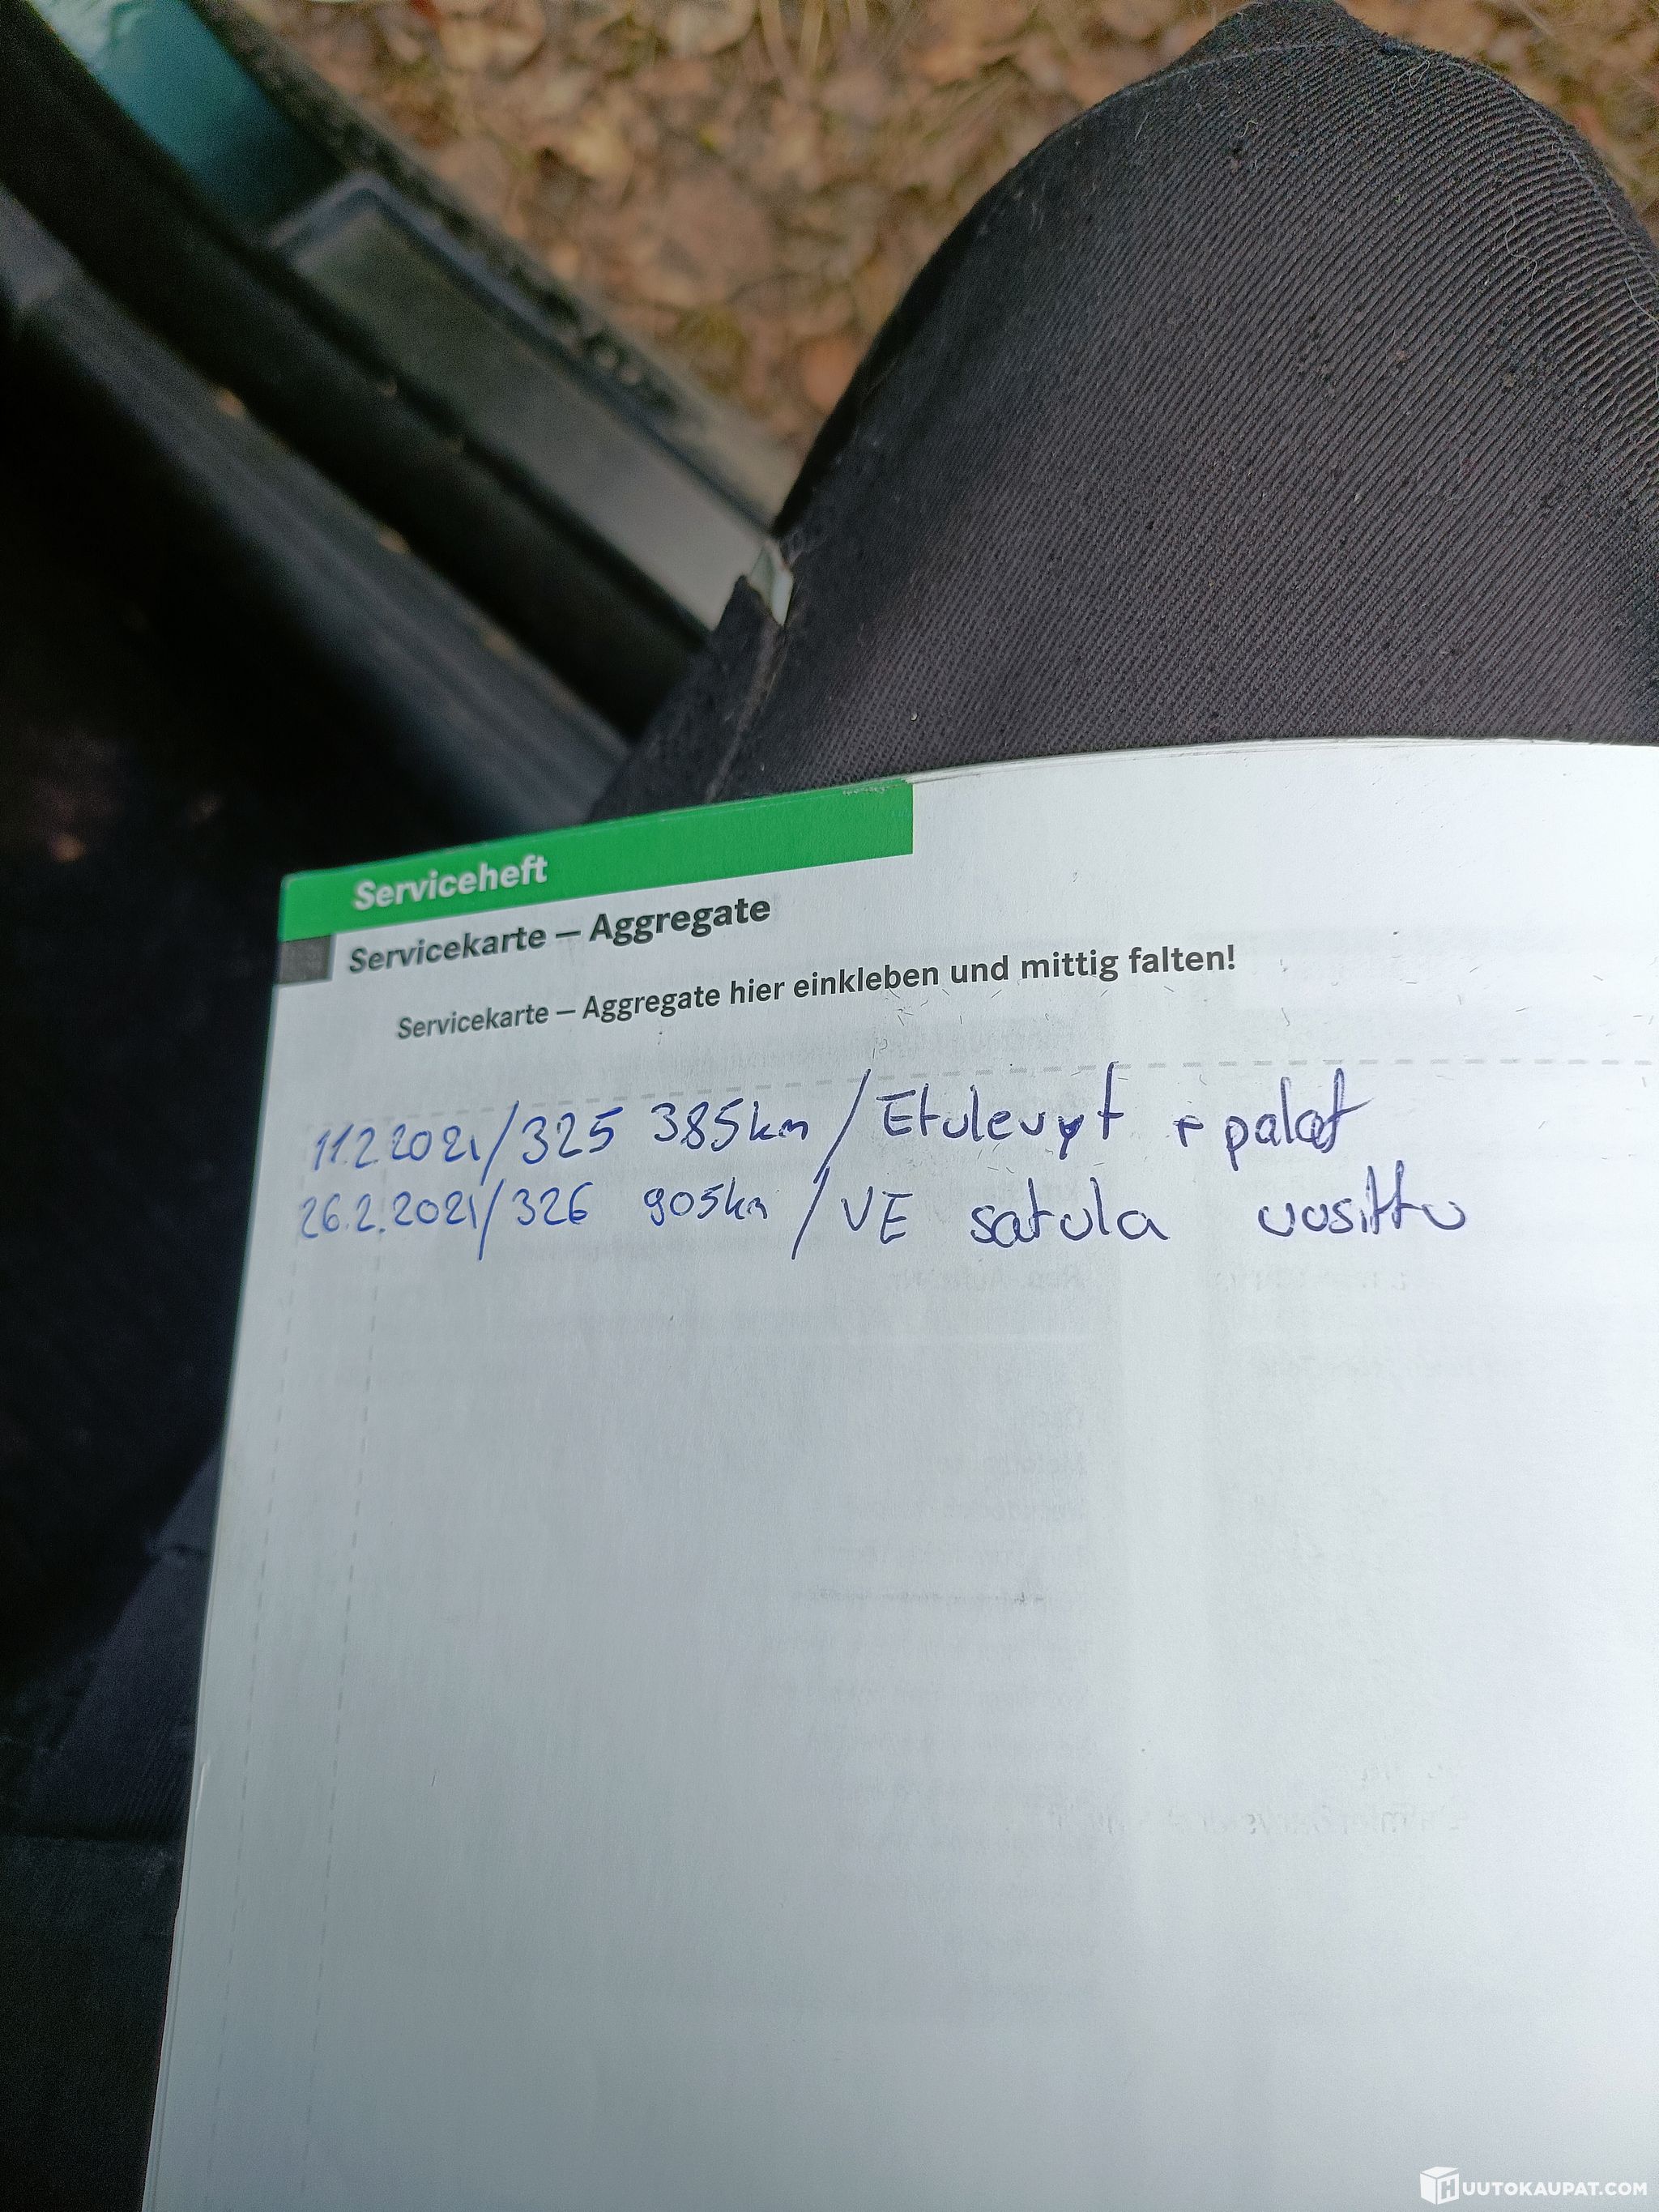 Serviceheft
Servicekarte – Aggregate
Servicekarte – Aggregate hier einkleben und mittig falten!
11.2.2021/325 385km/Etulevyt + palat
26.2.2021/326 905km/VE satula uusittu
HUUTOKAUPAT.COM